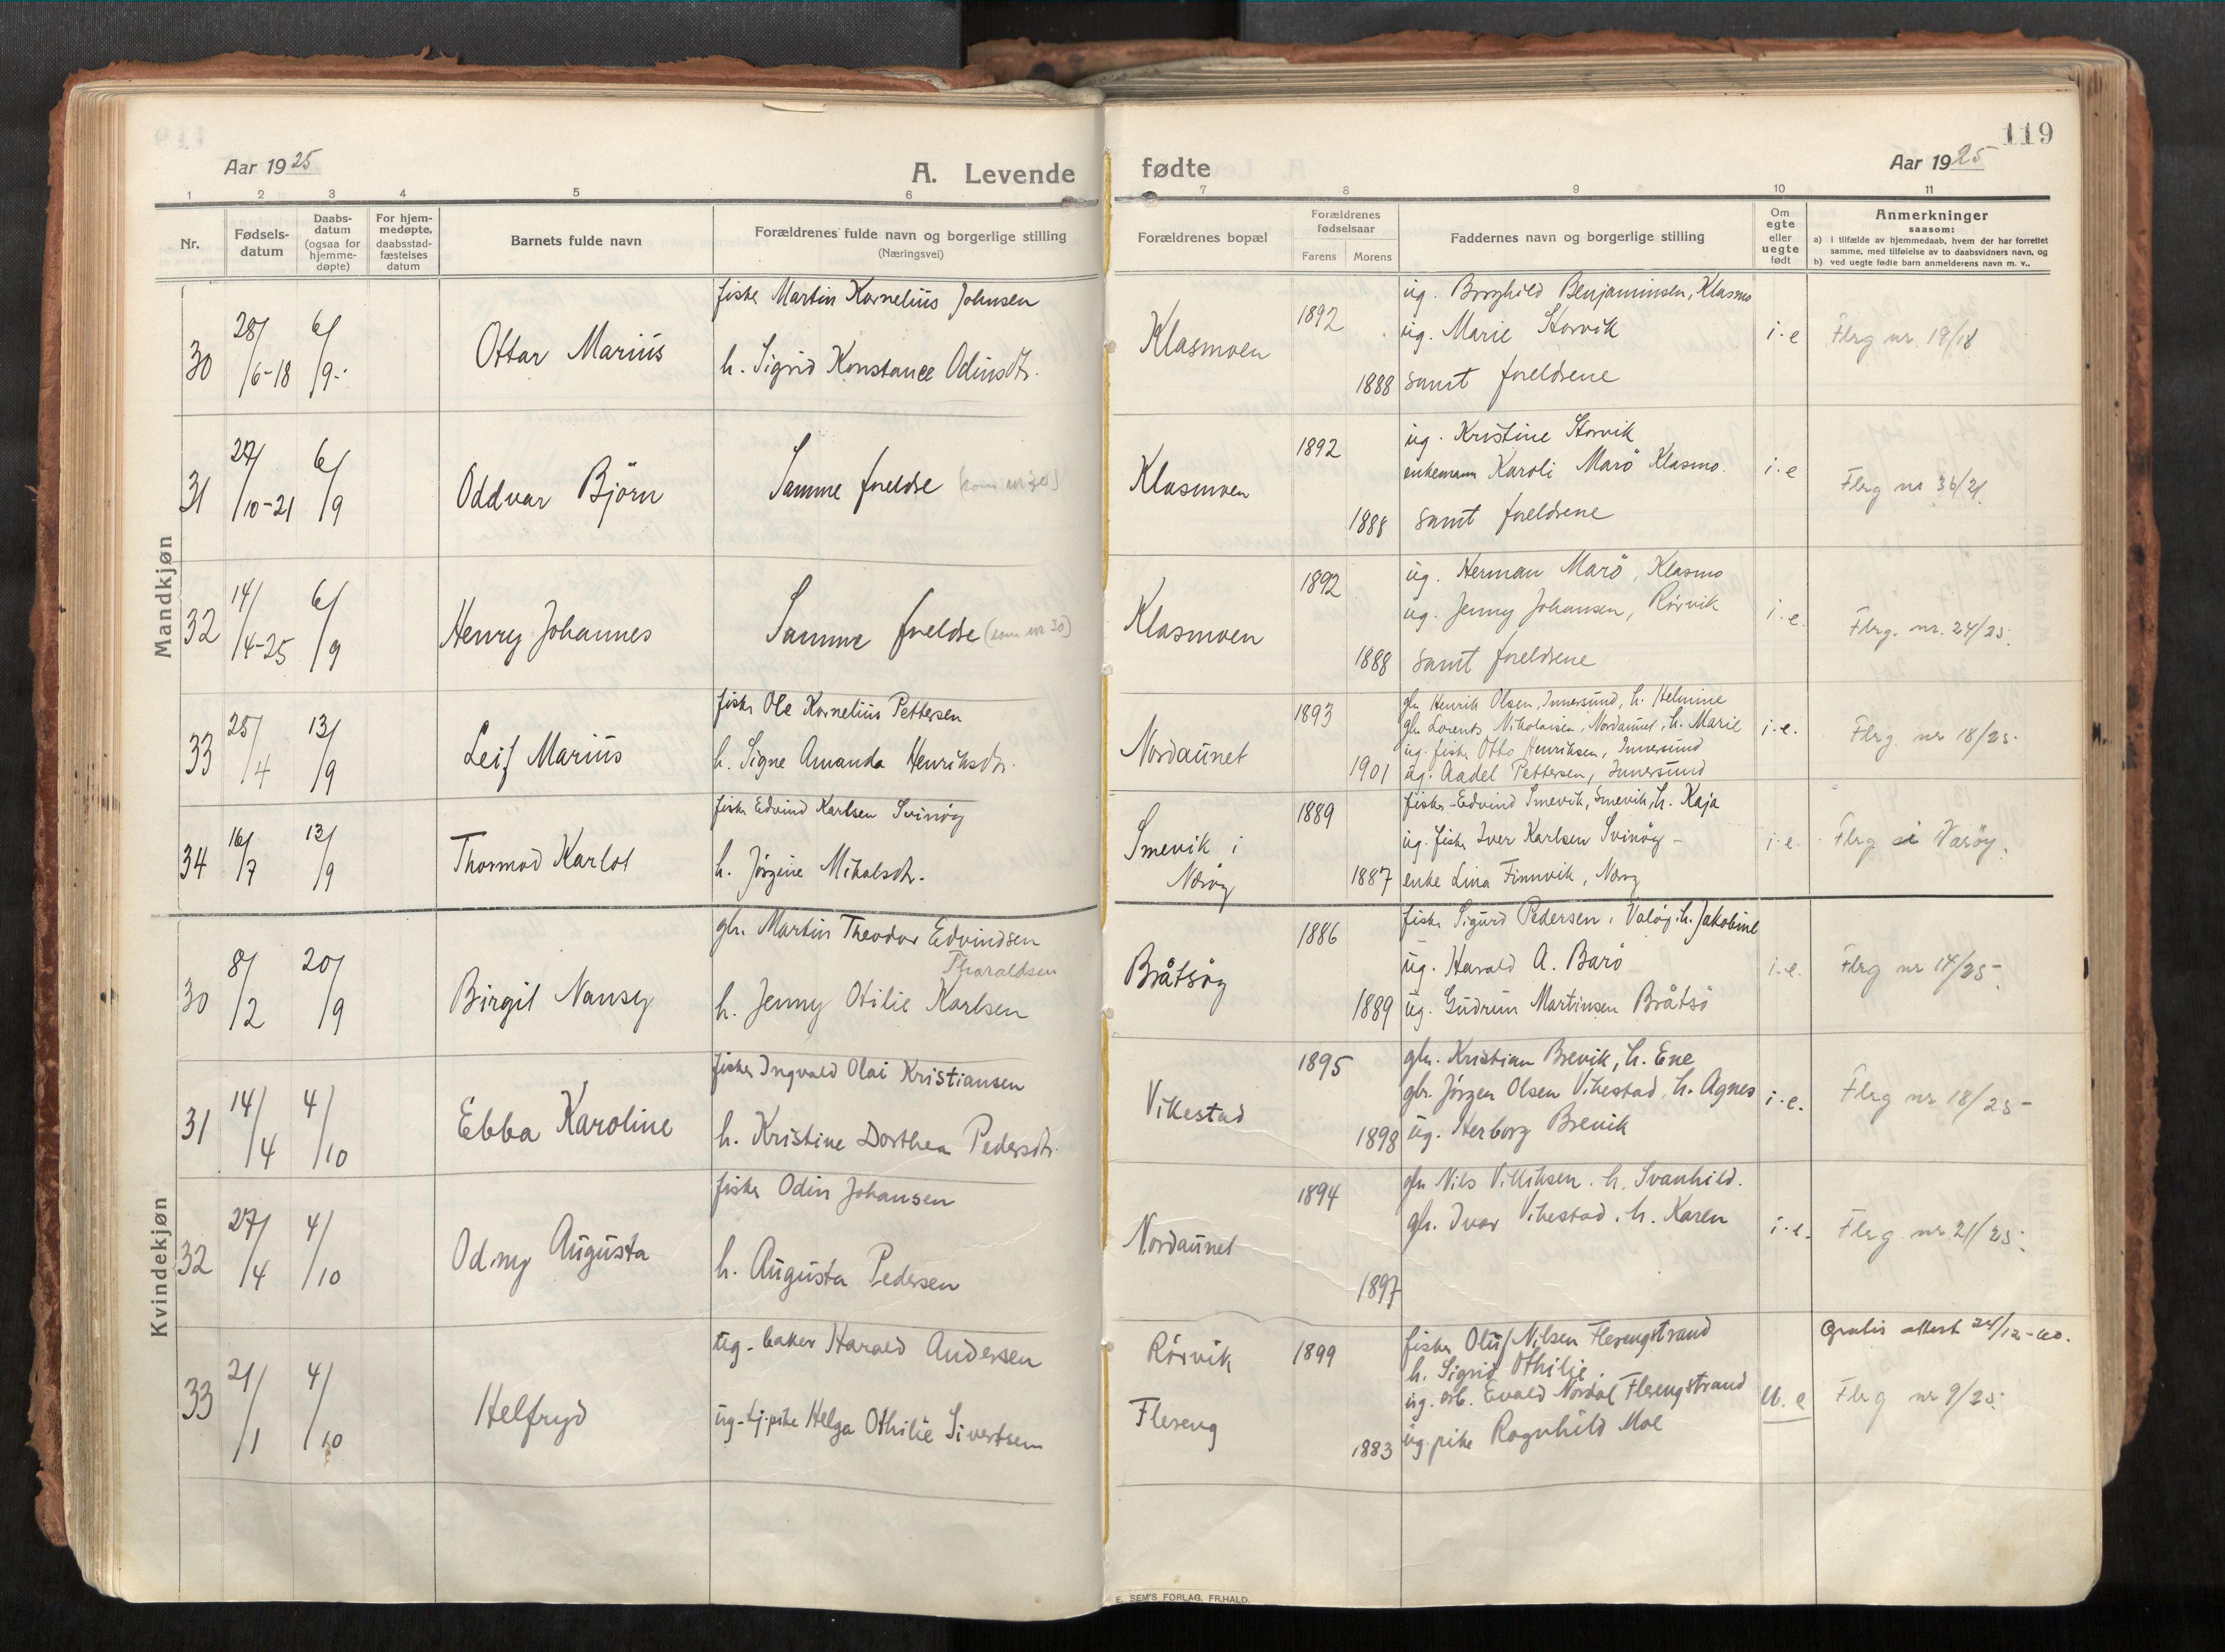 119
Aar 1925
A. Levende
fødte
Aar 1925
1 2 3 4 5 6
7 8 9 10 11
Nr.
Fødsels-
datum
Daabs-
datum
(ogsaa for
hjemme-
døpte)
For hjem-
medøpte,
daabsstad-
fæstelses
datum
Barnets fulde navn
Forældrenes fulde navn og borgerlige stilling
(Næringsvei)
Forældrenes bopæl
Forældrenes
fødselsaar
Farens Morens
Faddernes navn og borgerlige stilling
Om
egte
eller
uegte
født
Anmerkninger
saasom:
a) i tilfælde av hjemmedaab, hvem der har forrettet
samme, med tilføielse av to daabsvidners navn, og
b) ved uegte fødte barn anmelderens navn m. v..
Mandkjøn
30 28/6-18 6/9 Ottar Marius
fisker Martin Kornelius Johnsen
h. Sigrid Konstance Odinsdtr.
Klasmoen 1892 1888
ug. Borghild Benjaminsen, Klasmo
ug. Marie Storvik
samt foreldrene
i.e Flrg nr. 19/18
31 27/10-21 6/9 Oddvar Björn
Samme foreldre (som nr 30)
Klasmoen 1892 1888
ug. Kristine Storvik
enkemann Karoli Marö Klasmo.
samt foreldrene
i.e Flrg nr 36/21.
32 14/4-25 6/9 Henry Johannes
Samme foreldre (som nr 30)
Klasmoen 1892 1888
ug. Herman Marö, Klasmo
ug. Jenny Johansen, Rörvik
samt foreldrene
i.e. Flrg. nr. 24/25.
33 25/4 13/9 Leif Marius
fisker Ole Kornelius Pettersen
h. Signe Amanda Henriksdtr.
Nordaunet 1893 1901
gbr Henrik Olsen, Innersund, h. Helmine
gbr Lorents Nikolaisen, Nordaunet, h. Marie
ug. fisker Otto Henriksen, Innersund
ug. Aadel Pettersen, Innersund
i.e. Flrg nr 18/25.
34 16/7 13/9 Thormod Karlot
fisker Edvind Karlsen Svinöy
h. Jörgine Mikalsdtr.
Smevik i
Næröy
1889 1887
fisker Edvind Smevik, Smevik, h. Kaja
ug. fisker Iver Karlsen Svinöy -
enke Lina Finnvik, Næröy
i.e. Flrg i Værøy.
Kvindekjøn
30 8/2 20/9 Birgit Nansy
gbr. Martin Theodor Edvindsen
Tharaldsen
h. Jenny Otilie Karlsen
Bråtsöy 1886 1889
fisker Sigurd Pedersen, Valöy, h. Jakobine
ug. Harald A. Barö
ug. Gudrun Martinsen Bråtsö
i.e. Flrg nr 14/25.
31 14/4 4/10 Ebba Karoline
fisker Ingvald Olai Kristiansen
h. Kristine Dorthea Pedersdtr.
Vikestad 1895 1898
gbr. Kristian Brevik, h. Ene
gbr. Jörgen Olsen Vikestad, h. Agnes
ug. Herborg Brevik
i.e. Flrg nr 18/25
32 27/4 4/10 Odny Augusta
fisker Odin Johansen
h. Augusta Pedersen
Nordaunet 1894 1897
gbr Nils Villiksen. h. Svanhild.
gbr. Ivar Vikestad. h. Karen
i.e. Flrg nr 21/25.
33 21/1 4/10 Helfryd
ug. baker Harald Andersen
ug. tj.pike Helga Othilie Sivertsen
Rörvik
Flereng
1899 1883
fisker Oluf Nilsen Flerengstrand
h. Sigrid Othilie.
ug. arb. Evald Nordal Flerengstrand
ug. pike Ragnhild Moe
U.e
Gratis attest 24/12-40.
Flrg nr 9/25.
E. SEM'S FORLAG, FR.HALD.